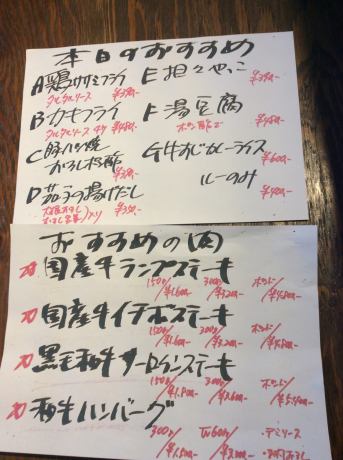 本日のおすすめ
A 鶏ササミフライ ¥390-
タルタルソース
B カキフライ
タルタルソース 4ケ ¥480-
C 豚バラ焼
おろしポン酢 ¥380-
D 茄子の揚げだし
¥350-
E 担々やっこ ¥390-
F 湯豆腐
ポン酢で ¥450-
G 牛すじカレーライス
¥600-
ルーのみ
¥400-
おすすめの肉
国産牛ランプステーキ
150g/¥1,600- 300g/¥3,200- ポンド/¥4,800-
国産牛イチボステーキ
150g/¥1,600- 300g/¥3,200- ポンド/¥4,800-
黒毛和牛サーロインステーキ
150g/¥1,800- 300g/¥3,600- ポンド/¥5,400-
和牛ハンバーグ
300g/¥1,500- W600g/¥3,000- ・デミソース